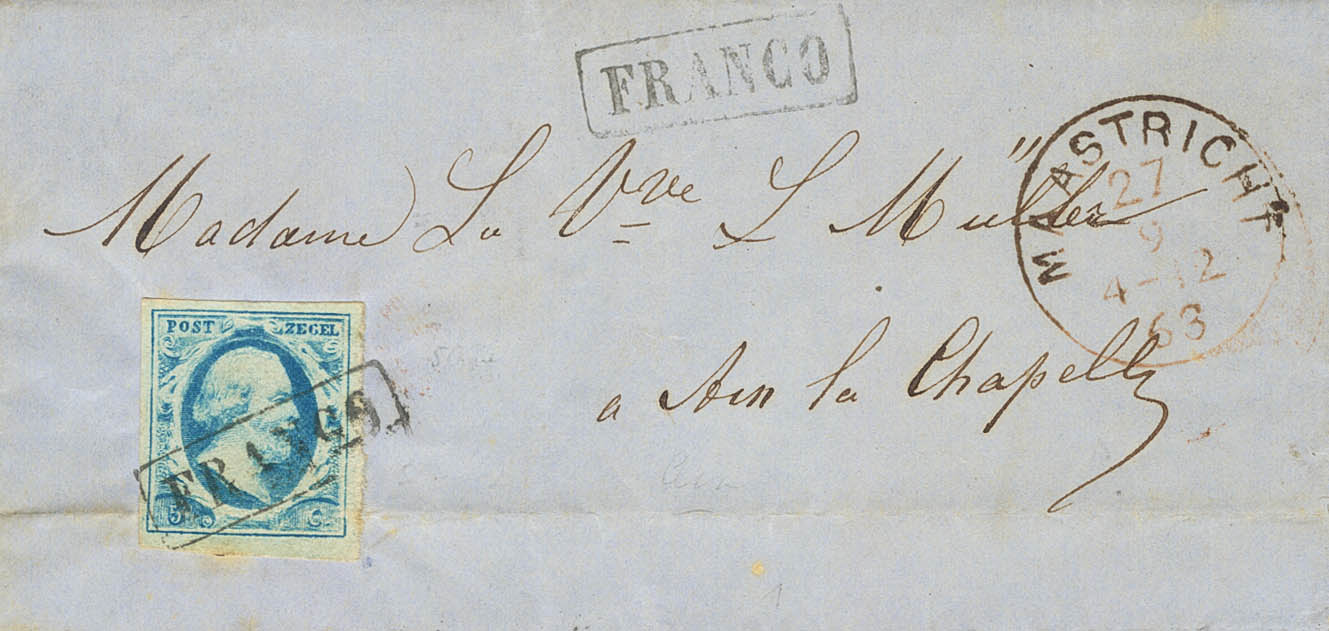 FRANCO
MAASTRICHT
27
9
4-12
63
Madame La Vve L Müller
POST ZEGEL
FRANCO
5 C.
a Aix la Chapelle